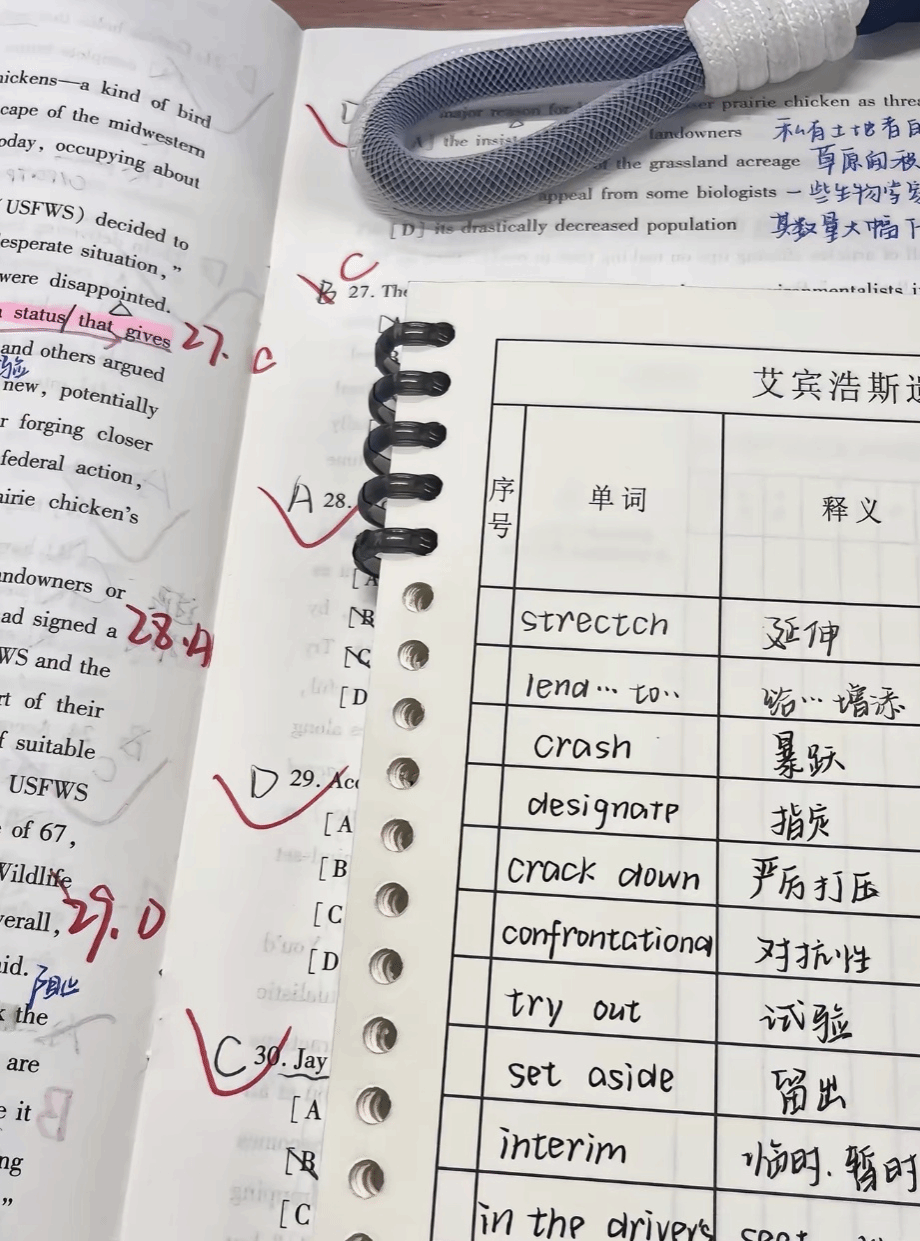 ickens—a kind of bird
cape of the midwestern
oday, occupying about
USFWS) decided to
esperate situation,”
were disappointed.
status that gives
27. C
and others argued
验
new, potentially
r forging closer
federal action,
irie chicken's
ndowners or
ad signed a
28. A
WS and the
rt of their
f suitable
USFWS
of 67,
Wildlife
verall,
29. D
aid.
阻止
the
are
e it
ng
”
D
major reason for
er prairie chicken as threa
A] the insist
landowners
私有土地者
the grassland acreage
草原面积
appeal from some biologists
一些生物学家
[D] its drastically decreased population
其数量大幅下
C
B 27. The
nmentalists i
A 28.
[A
[B
[C
[D
D 29. Acc
[A
[B
[C
[D
C 30. Jay
[A
[B
[C
艾宾浩斯遗
序号 单词 释义
strectch 延伸
lend…to.. 给…增添
crash 暴跌
designate 指定
crack down 严厉打压
confrontational 对抗性
try out 试验
set aside 留出
interim 临时.暂时
in the driver's seat